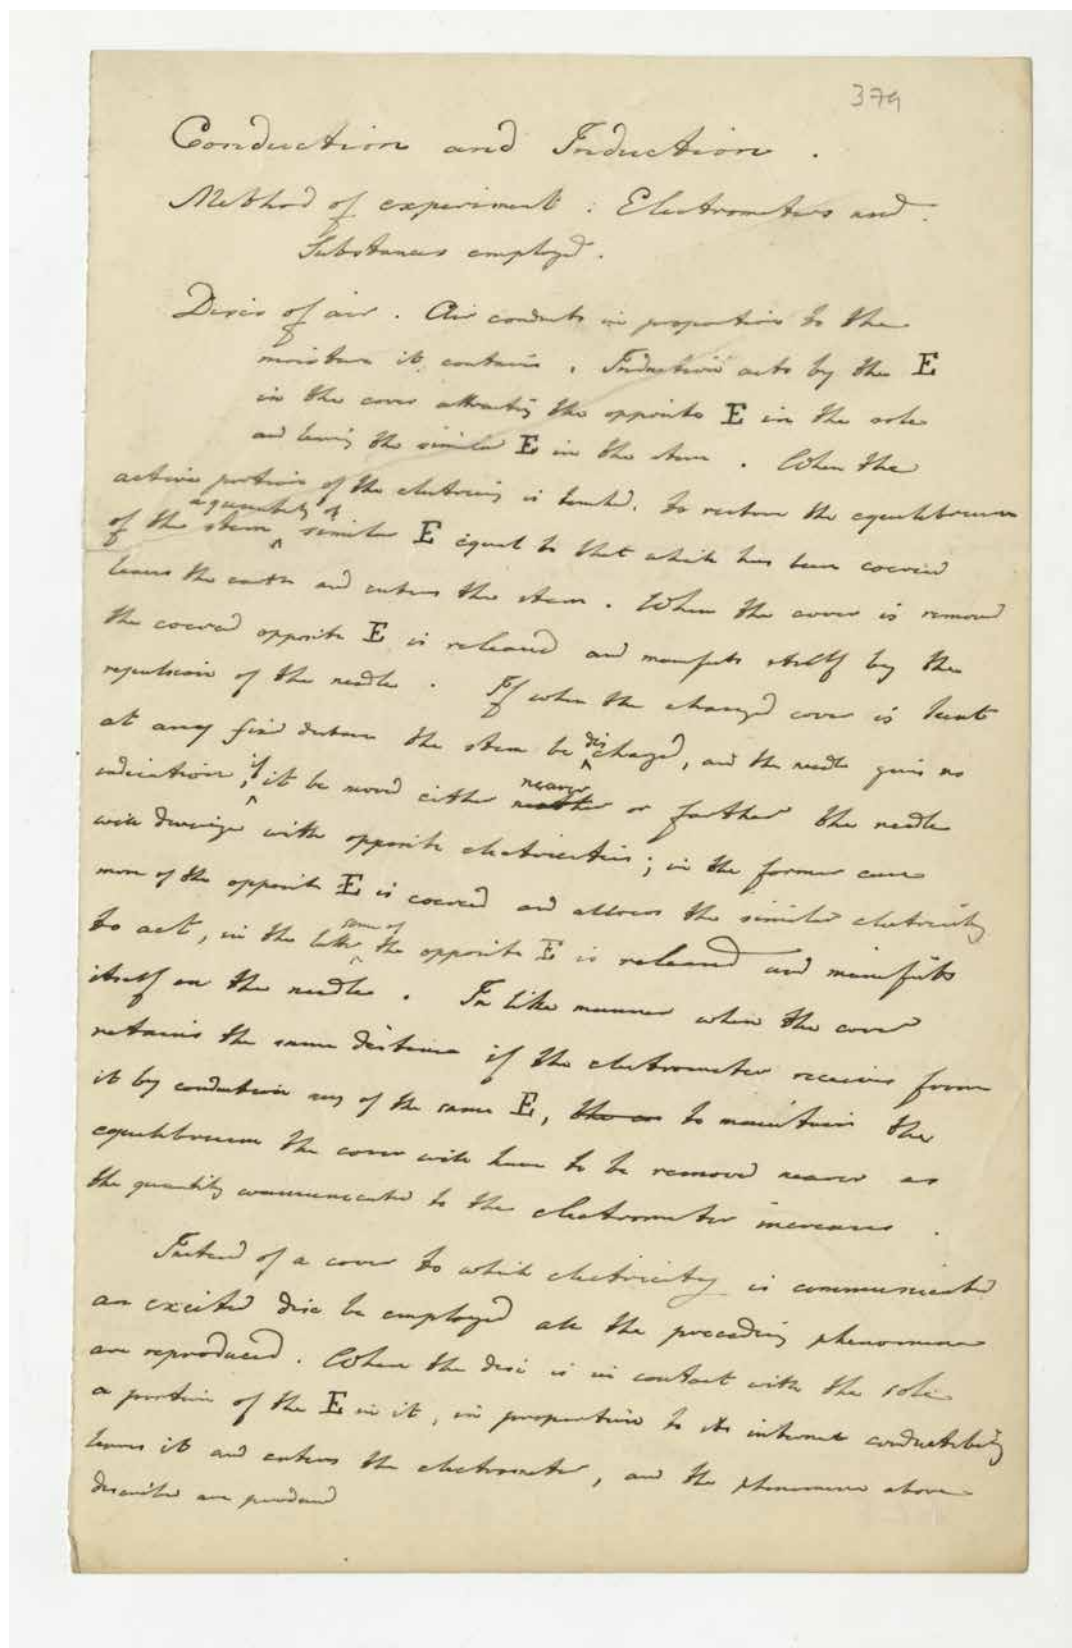 379
Conduction and Induction.
Method of experiment: Electrometers and
Substances employed.
Discs of air. Air conducts in proportion to the
moisture it contains. Induction acts by the E
in the cover attracting the opposite E in the sole
and leaving the similar E in the stem. When the
active portion of the electricity is touched, to restore the equilibrium
of the stem a quantity of similar E equal to that which has been coerced
leaves the earth and enters the stem. When the cover is removed
the coerced opposite E is released and manifests itself by the
repulsion of the needle. If when the charged cover is kept
at any fixed distance the stem be discharged, and the needle gives no
indication, if it be moved either nearer or farther the needle
will diverge with opposite electricities; in the former case
more of the opposite E is coerced and allows the similar electricity
to act, in the latter some of the opposite E is released and manifests
itself on the needle. In like manner when the cover
retains the same distance if the electrometer receives from
it by conduction any of the same E, to maintain the
equilibrium the cover will have to be removed nearer as
the quantity communicated to the electrometer increases.
Instead of a cover to which electricity is communicated
an excited disc be employed all the preceding phenomena
are reproduced. When the disc is in contact with the sole
a portion of the E in it, in proportion to its internal conductibility
leaves it and enters the electrometer, and the phenomena above
described are produced